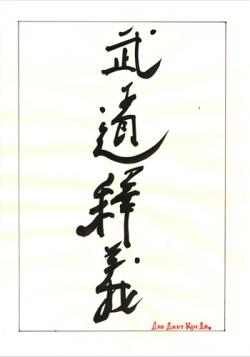 武道釋義
ДАО ДЖЭТ КУН ДО.